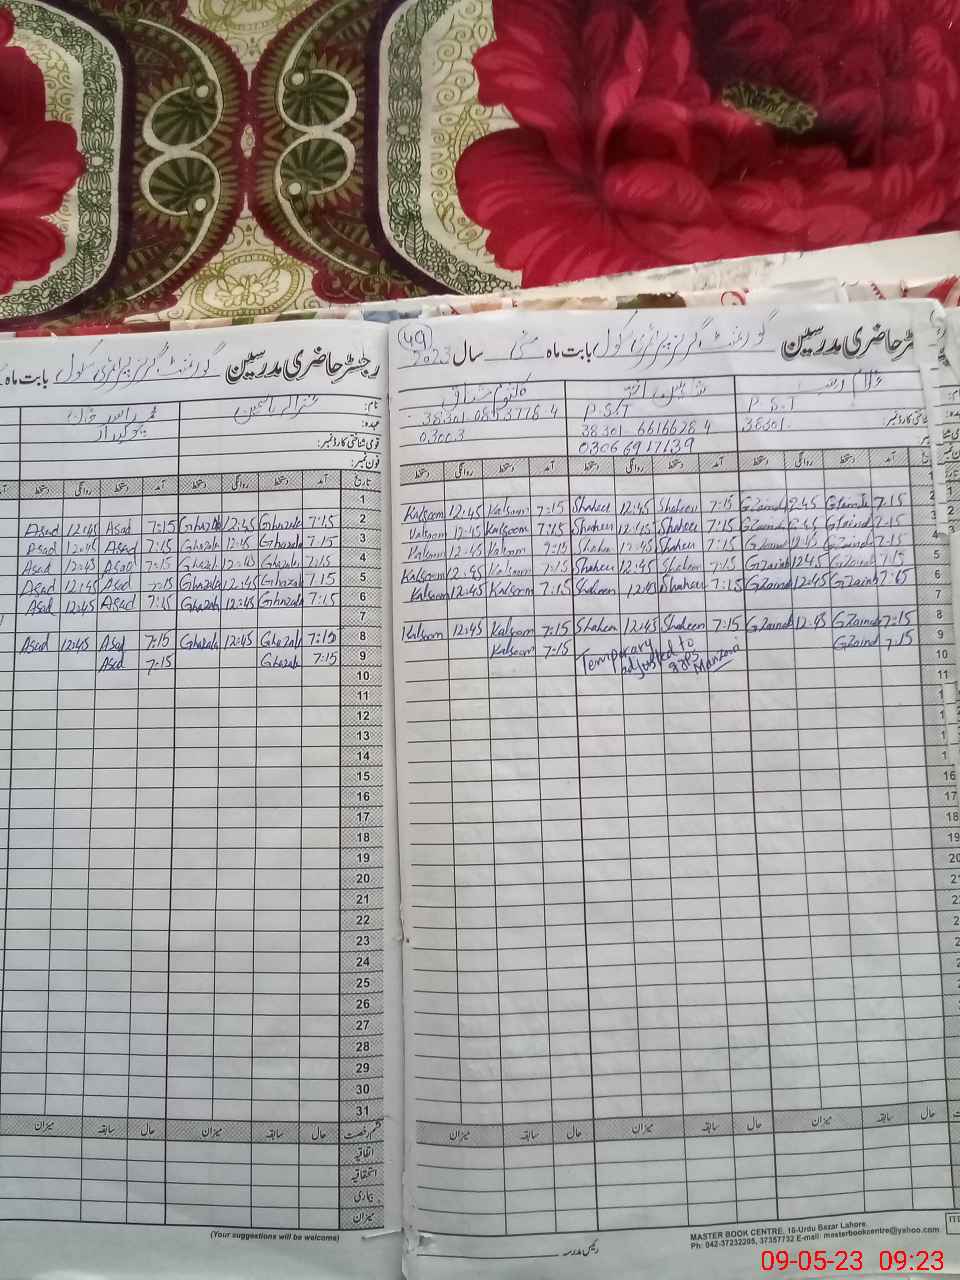 49
2023 سال مئی بابت ماہ گورنمنٹ گرلز پرائمری سکول رجسٹر حاضری مدرسین
P.S.T
38301-
P.S.T
38301-6616628-4
03066917139
03003
آمد دستخط روانگی دستخط آمد دستخط روانگی دستخط آمد دستخط روانگی دستخط
7.15 GZainab 12:45 GZainab 7:15 Shaheen 12:45 Shaheen 7:15 Kalsoom 12:45 Kalsoom
7.15 GZainab 12:45 GZainab 7:15 Shaheen 12:45 Shaheen 7:15 Kalsoom 12:45 Kalsoom
7.15 GZainab 12:45 GZainab 7:15 Shaheen 12:45 Shaheen 7:15 Kalsoom 12:45 Kalsoom
7:15 GZainab 12:45 GZainab 7:15 Shaheen 12:45 Shaheen 7:15 Kalsoom 12:45 Kalsoom
7:15 GZainab 12:45 GZainab 7:15 Shaheen 12:45 Shaheen 7:15 Kalsoom 12:45 Kalsoom
7:15 GZainab 12:45 GZainab 7:15 Shaheen 12:45 Shaheen 7:15 Kalsoom 12:45 Kalsoom
7:15 GZainab Temporary adjusted to 7:15 Kalsoom
حال سابقہ میزان حال سابقہ میزان حال سابقہ میزان
رئیس مدرسہ
MASTER BOOK CENTRE, 16-Urdu Bazar Lahore.
Ph: 042-37232205, 37357732 E-mail: masterbookcentre@yahoo.com
رجسٹر حاضری مدرسین گورنمنٹ گرلز پرائمری سکول بابت ماہ
نام: غزالہ یاسمین
عہدہ: چوکیدار
قومی شناختی کارڈ نمبر:
فون نمبر:
تاریخ آمد دستخط روانگی دستخط آمد دستخط روانگی دستخط
1
2 7:15 Ghazala 12:45 Ghazala 7:15 Asad 12:45 Asad
3 7:15 Ghazala 12:45 Ghazala 7:15 Asad 12:45 Asad
4 7:15 Ghazala 12:45 Ghazala 7:15 Asad 12:45 Asad
5 7:15 Ghazala 12:45 Ghazala 7:15 Asad 12:45 Asad
6 7:15 Ghazala 12:45 Ghazala 7:15 Asad 12:45 Asad
7
8 7:15 Ghazala 12:45 Ghazala 7:15 Asad 12:45 Asad
9 7:15 Ghazala 7:15 Asad
10
11
12
13
14
15
16
17
18
19
20
21
22
23
24
25
26
27
28
29
30
31
قسم رخصت حال سابقہ میزان حال سابقہ میزان
اتفاقیہ
استحقاقیہ
بیماری
میزان
(Your suggestions will be welcome)
09-05-23 09:23